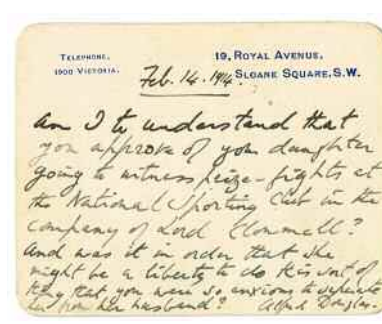 TELEPHONE,
1900 VICTORIA.
19, ROYAL AVENUE,
SLOANE SQUARE, S.W.
Feb. 14. 1914.
Am I to understand that
you approve of your daughter
going to witness prize-fights at
the National Sporting Club in the
company of Lord Clonmell?
And was it in order that she
might be at liberty to do this sort of
thing that you were so anxious to separate
her from her husband? Alfred Douglas.